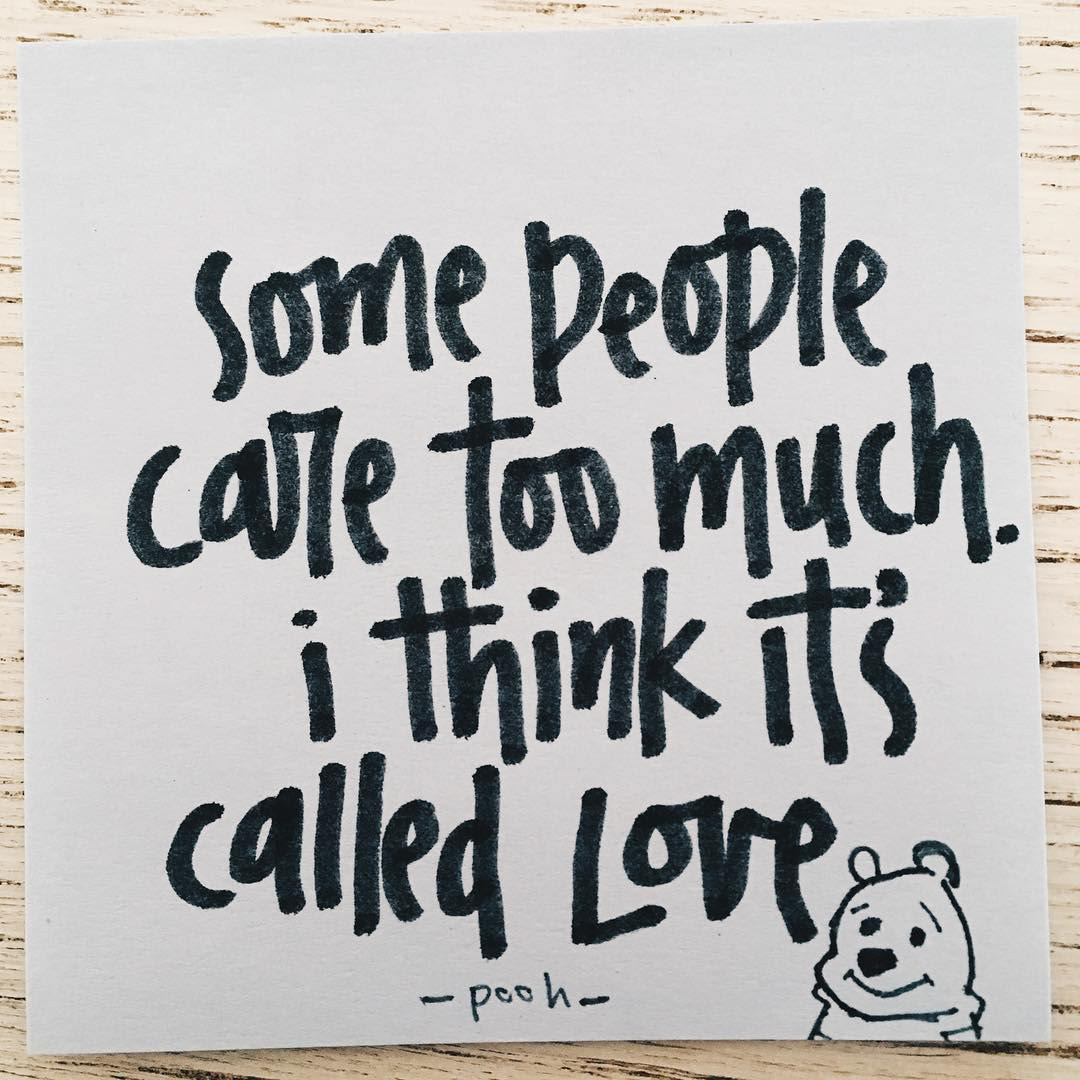 some people
care too much.
i think it's
called Love
- pooh -